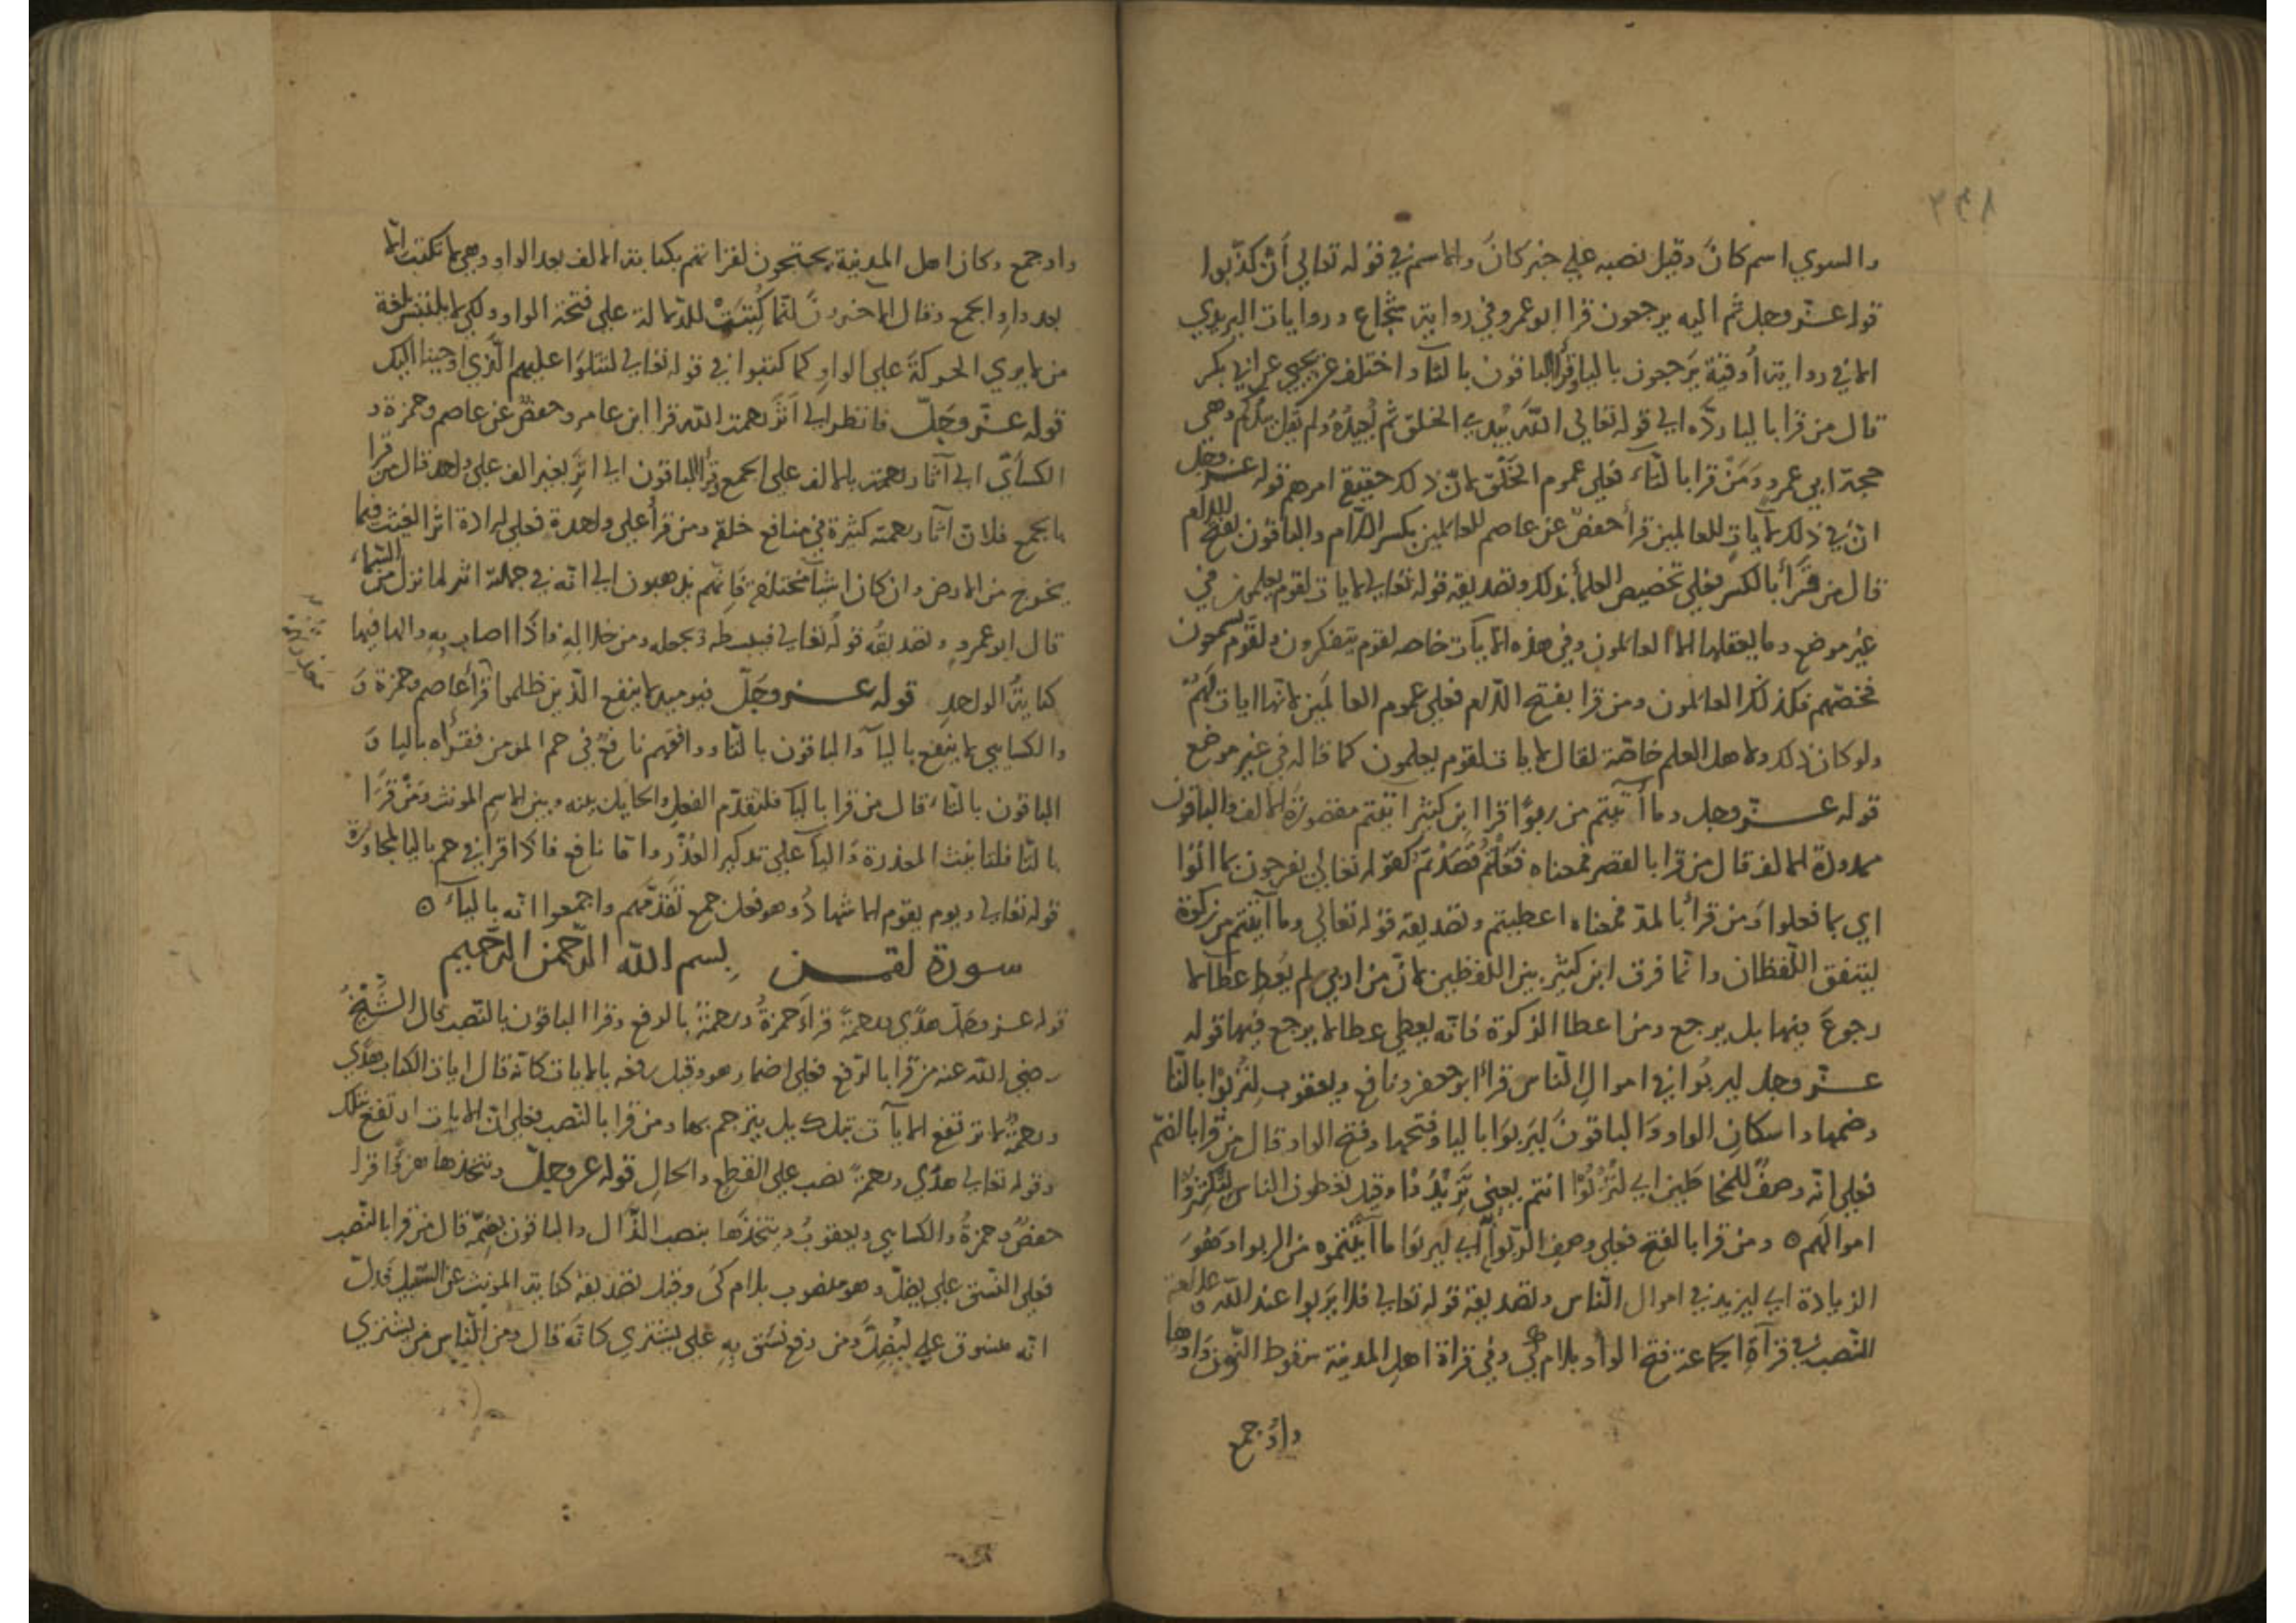 ٣٣٨
والسوي اسم كان وقيل نصبه علي خبر كان والاسم في قوله تعالي أن كذّبوا
قوله عزّ وجل ثم اليه يرجعون قرا ابو عمرو في رواية شجاع وروايات اليزيدي
الا في رواية أوقية يَرجعون باليا وقرأ الباقون بالتآء واختلف عن يحيي عن ابي بكر
قال من قرا باليا ردّه الي قوله تعالي اللّه يبدي الخلق ثم يُعيدُه ولم يقل يعيدكم وهي
حجة ابي عمرو وَمَنْ قرا بالتآء فعلي عموم الخَلْق لانّ ذلك حقيقة امرهم قوله عزّ وجل
انّ في ذلك لآياتٍ للعالمين قرأ حفصٌ عن عاصم للعالمين بكسر اللّام والباقون بفتح اللام
قال من قَرأ بالكسر فعلي تخصيص العلمآء بذلك وتصديقه قوله تعالي لايات لقوم يعلمون في
غير موضع وما يعقلها الا العالمون وفي هذه الايآت خاصه لقوم يتفكرون ولقوم يسمعون
فخصّهم فكذلك العالمون ومن قرا بفتح اللّام فعلي عموم العالَمين لانّها ايات لهُمْ
ولو كان ذلك ولاهل العلم خاصّة لقال لايات لقوم يعلمون كما قاله في غير موضع
قوله عزّ وجل وما آتيتم من ربوًا قرا ابن كثير اتيتم مقصورة الالف والباقون
ممدودة الالف قال من قرا بالقصر فمعناه فعلتم وقصدتم كقوله تعالي يفرحون بما اتوا
اي بما فعلوا ومن قرأ بالمدّ فمعناه اعطيتم وتصديقه قوله تعالي وما آتيتم من زكوة
ليتفق اللّفظان وانّما فرق ابن كثير بين اللفظين لانّ من اربي لم يُعطِ عطآ لا
رجوعَ فيها بل يرجع ومن اعطا الزكوة فانّه يعطي عطا لا يرجع فيها قوله
عزّ وجل ليربُوا في اموال النّاس قرأ ابو جعفر ونافع ويعقوب لِتُرْبُوا بالتّا
وضمها واسكانِ الواو وَالباقونَ ليَربُوَا باليا وفتحها وفتح الواو قال من قرا بالضّم
فعلي انّه وصفٌ للمخاطَبين اي لتُرْبُوْا انتم يعني تَزيدُوْا وقيل تعطون الناس لتُكثِروْا
اموالكم ۝ ومن قرا بالفتح فعلي وصف الرّبوا اي ليربوَا ما آتيتموه من الربوا وَهُوَ
الزيادة اي ليزيد في اموال النّاس وتصديقه قوله تعالي فلا يَربوا عند اللّه ۝ علامة
النّصب في قرآةِ الجماعة فتح الواو بلام كي وفي قراة اهل المدينة سقوط النّون وَاوها
واوُ جمع
واو جمع وكان اهل المدينة يحتجون لقراتهم بكتابة الالف بعد الواو وهي لا تكتب الّا
بعد واوِ الجمع وقال الاخرونَ انّما كُتِبَتْ للدّلالة علي فتحة الواو ولكي لا يلتبس بلغة
من لا يري الحركةَ علي الواو كما كتبوا في قوله تعالي لتتلوَا عليهم الّذي اوحينا اليك
قوله عزّ وجَلّ فانظر الي اَثَر رحمة اللّه قرا ابن عامر وحفصٌ عن عاصم وحمزة و
الكسآئي الي آثار رحمة بالالف علي الجمع وقرأ الباقون الي اثَرِ بغير الف علي واحد قال من قرا
بالجمع فلانّ آثار رحمته كثيرة في منافع خلقه ومن قرأ علي واحدة فعلي ارادة اثر الغيث فيما
يخرج من الارض وان كان اشيآء مختلفة فانّهم يذهبون الي انّه في جملة اثر لما نزل من السّماء
قال ابو عمرو وتصديقُه قولُه تعالي فيبسطه ويجعله ومن خلالهِ فاذا اصاب بهِ والها فيها
كناية الواحدِ قوله عزّ وجَلّ فيوميذ لا ينفع الّذين ظلموا قرأ عاصم وحمزة وَ
والكسايي لا ينفع باليآ والباقون بالتّا ووافقهم نافعٌ في حم المومن فقرأه باليا وَ
الباقون بالتّا، قال من قرا باليا فلتقدّم الفعل والحايل بينه وبين الاسم المونث وَمَنْ قَرَا
بالتّا فلتانيث المعذرة وَاليآ علي تذكير العُذْر وامّا نافع فاذا قرا في حم باليا لمجاورة
قوله تعالي ويوم يقوم الاشهادُ وهو فعل جمع تقدّمهم واجمعوا انّه باليآء ۝
سورة لقمن بسم اللّه الرّحمن الرّحيم
قوله عز وجلّ هدًي ورحمةً قراءَ حمزةُ ورحمةٌ بالرفع وقرا الباقون بالنّصب قال الشّيخُ
رضي اللّه عنه من قرا بالرّفع فعلي اضمار هو وقيل رفعه بالايات كانّه قال ايات الكتاب هدًي
ورحمةٌ لا ترتفع الايآت بتلك بل يترجم بها ومن قرا بالنّصب فعلي انّ الايات ارتفع بتلك
وقوله تعالي هدًي ورحمةً نصب علي القطع والحالِ قوله عز وجلّ ويتّخذها هزوًا قرا
حفصٌ وحمزةُ والكسايي ويعقوبُ ويتخذَها بنصب الذّال والباقون بضمّه قال من قرا بالنّصب
فعلي النّسق علي يضلّ وهو منصوب بلام كَي وقيل تصديقه كناية المونث عن السّبيل فدلّ
انّه منسوق علي ليُضِلَّ ومن رفع نسَق بِهِ علي يشتري كانّه قال ومن النّاس من يشتري